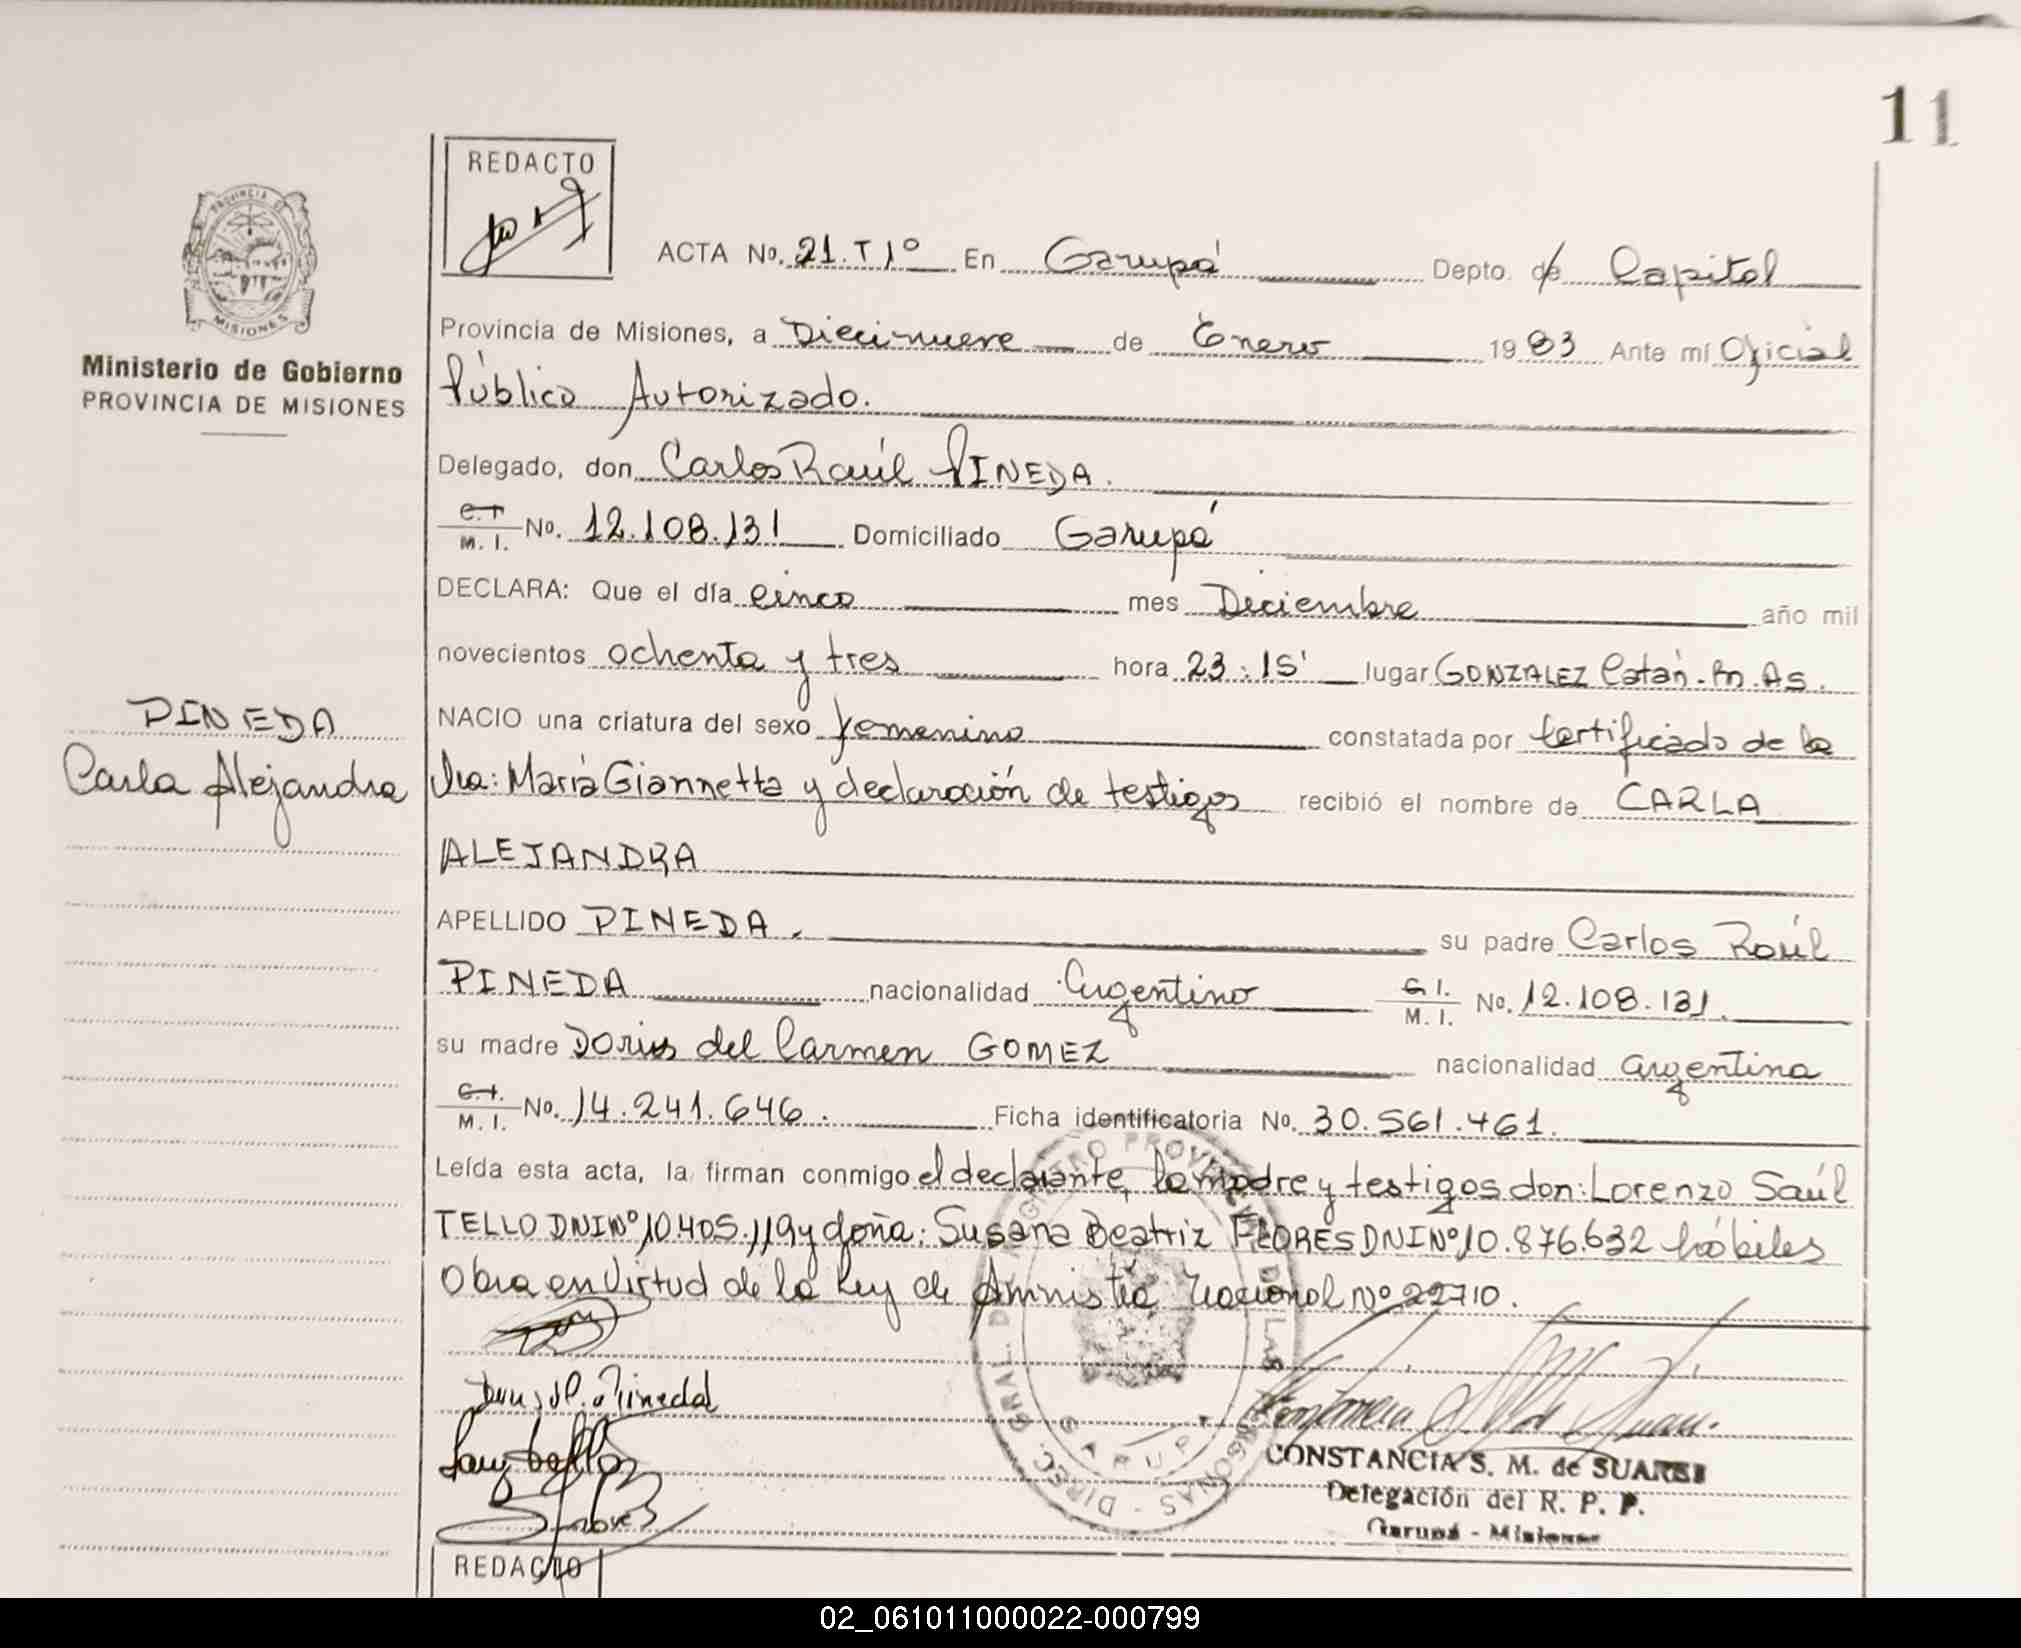 11
REDACTO
ACTA No. 21. T 1º En Garupá Depto. de Capital
Provincia de Misiones, a Diecinueve de Enero 1983 Ante mí Oficial
Público Autorizado.
Ministerio de Gobierno
PROVINCIA DE MISIONES
Delegado, don Carlos Raúl PINEDA.
C.I. M. I. No. 12.108.131 Domiciliado Garupá
DECLARA: Que el día cinco mes Diciembre año mil
novecientos ochenta y tres hora 23:15' lugar GONZALEZ Catán. Bs. As.
PINEDA
Carla Alejandra
NACIO una criatura del sexo femenino constatada por Certificado de la
Dra: María Giannetta y declaración de testigos recibió el nombre de CARLA
ALEJANDRA
APELLIDO PINEDA. su padre Carlos Raúl
PINEDA nacionalidad Argentino C.I. M. I. No. 12.108.131.
su madre Doris del Carmen GOMEZ nacionalidad argentina
C.I. M. I. No. 14.241.646. Ficha identificatoria No. 30.561.461.
Leída esta acta, la firman conmigo el declarante, la madre y testigos don: Lorenzo Saúl
TELLO DNI Nº 10.405.119 y doña: Susana Beatriz FLORES DNI Nº 10.876.632 hábiles
Obra en Virtud de la Ley de Amnistía Nacional Nº 22710.
CONSTANCIA S. M. de SUAREZ
Delegación del R. P. P.
Garupá - Misiones
REDACTO
02_061011000022-000799